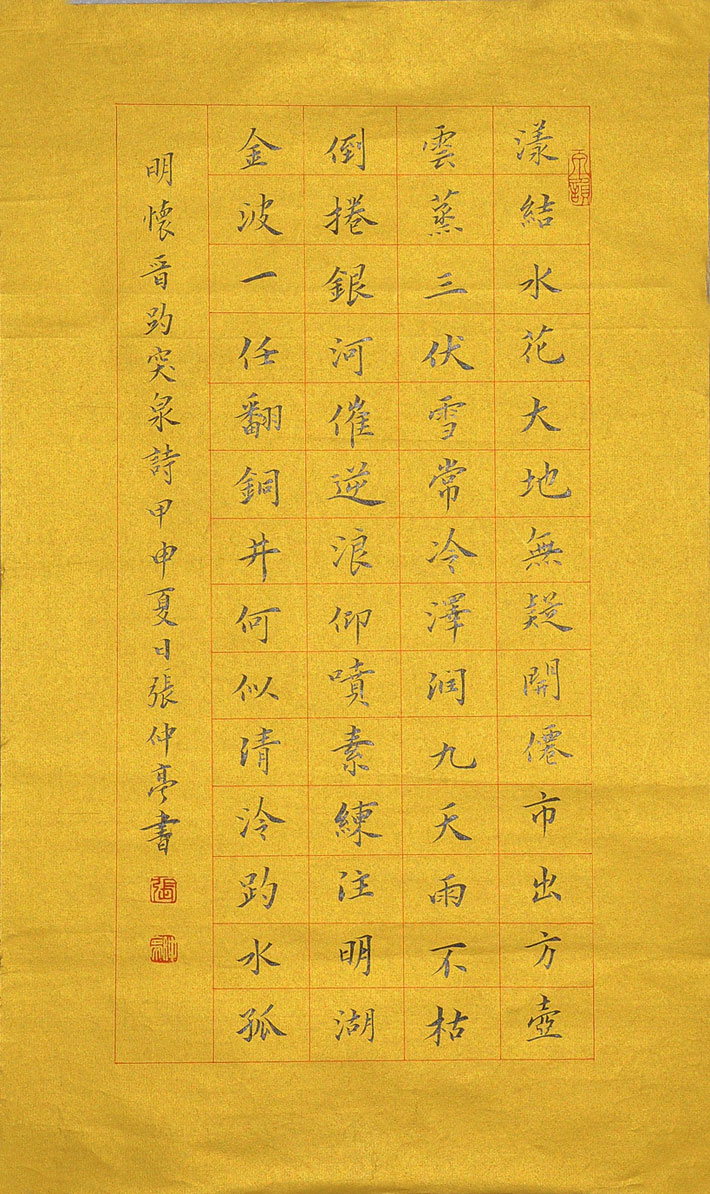 漾結水花大地無疑開僊市出方壺
雲蒸三伏雪常冷澤润九天雨不枯
倒捲銀河催逆浪仰噴素練注明湖
金波一任翻銅井何似清泠趵水孤
明懷晋趵突泉詩甲申夏日張仲亭書
張